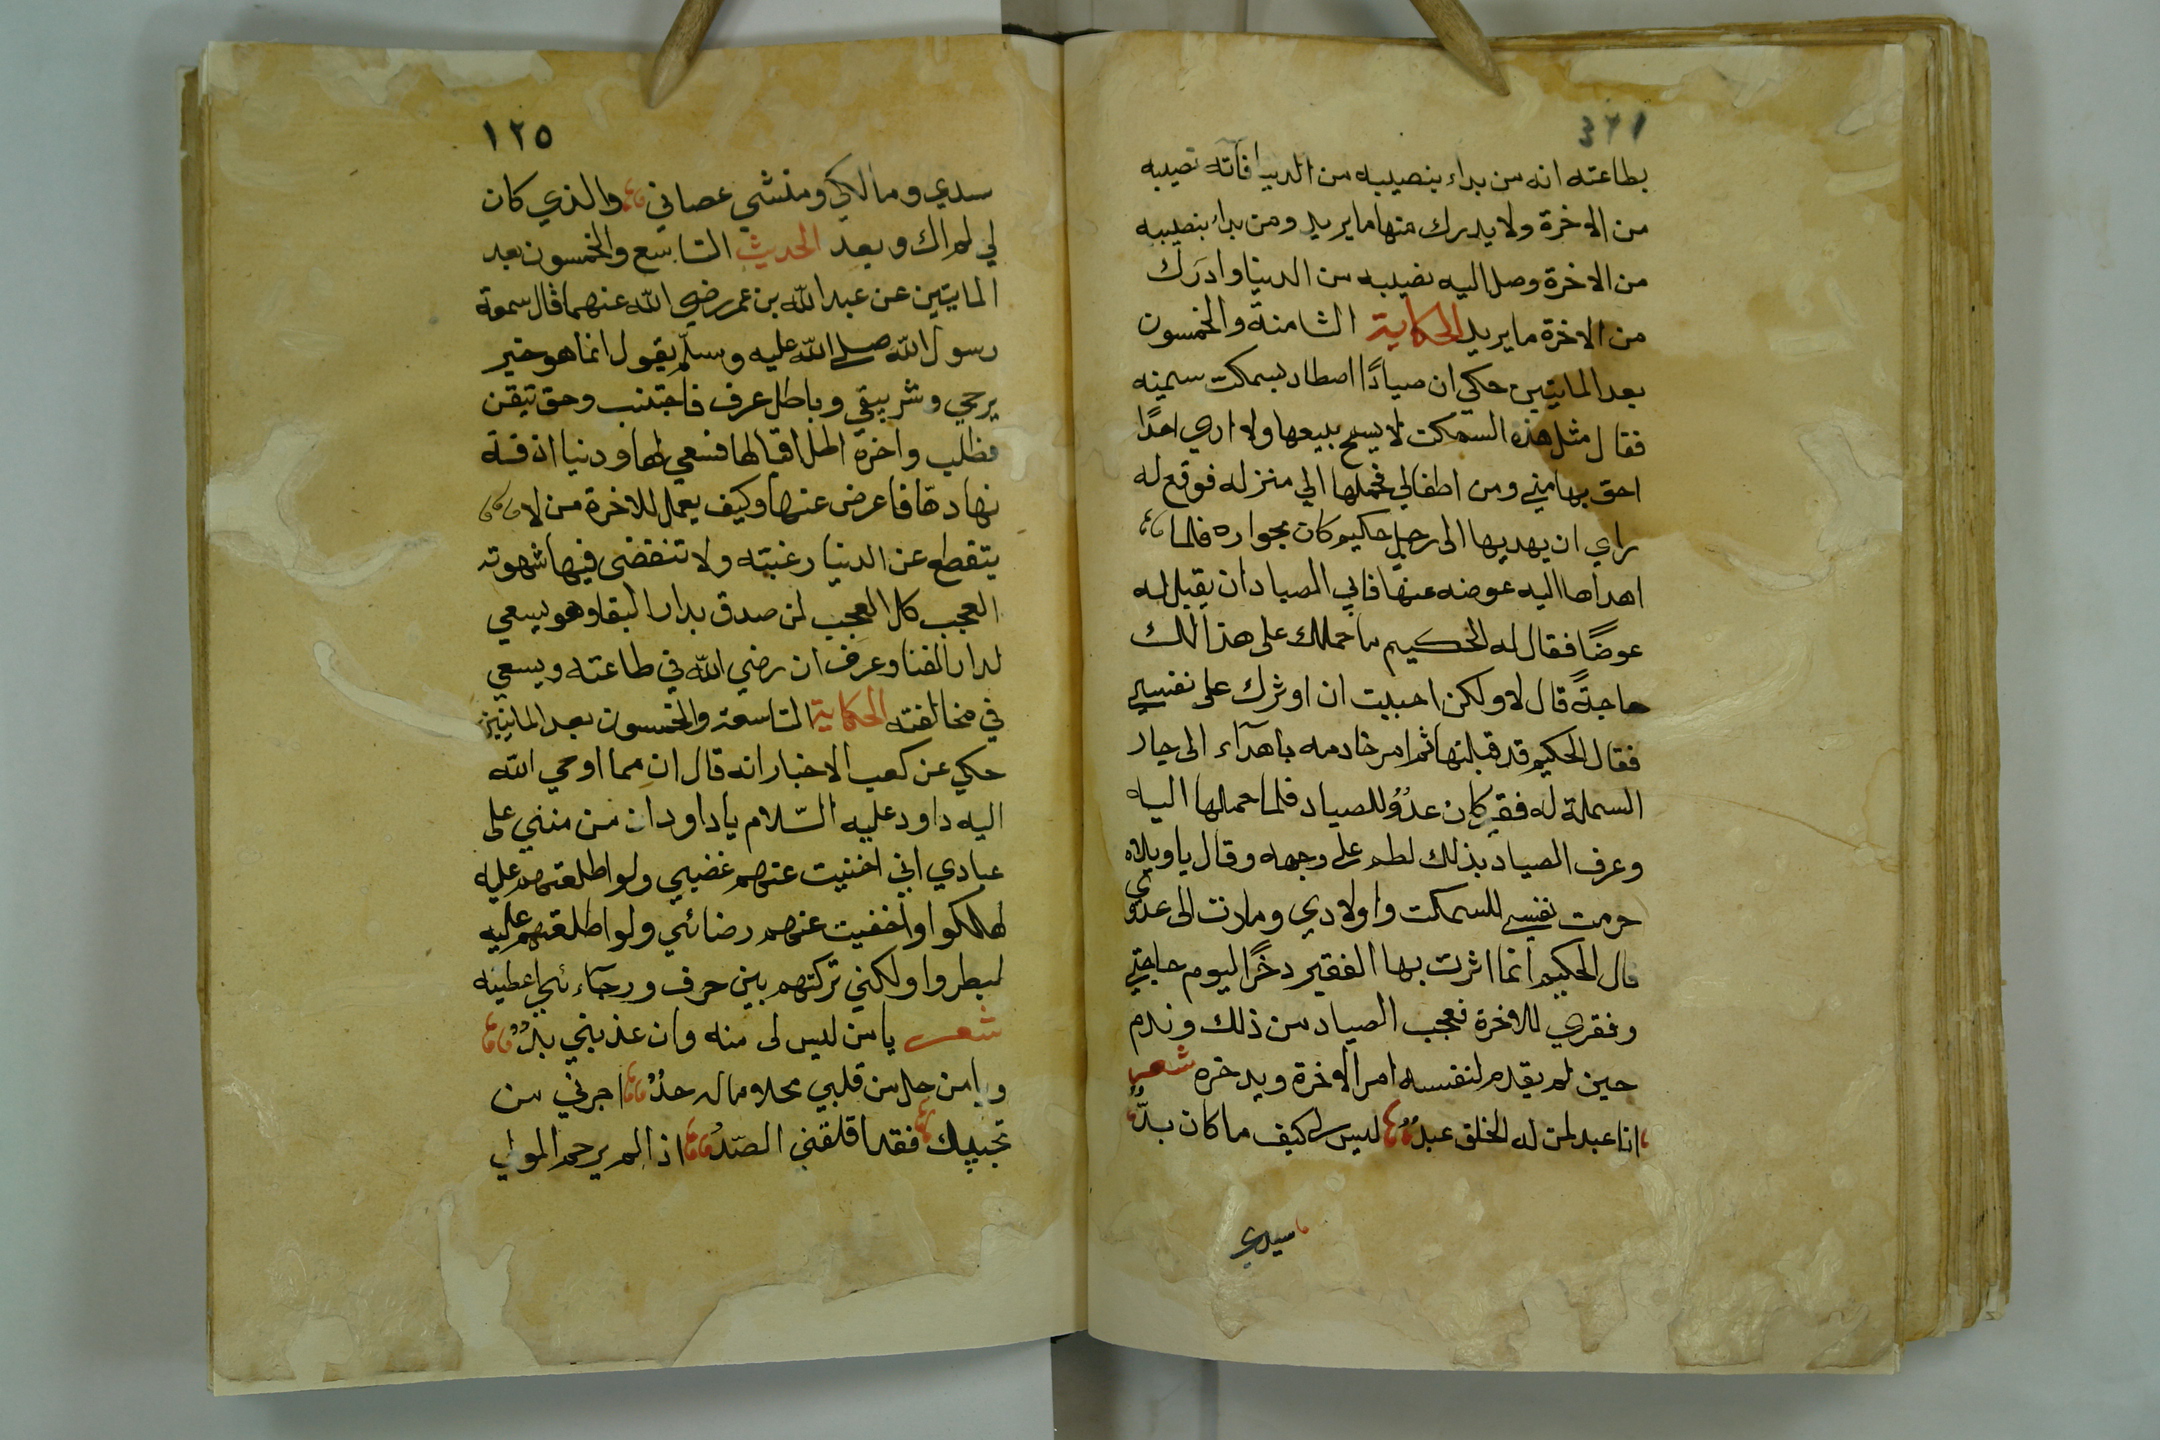 بطاعته انه من بداء بنصيبه من الدنيا فآته نصيبه
من الاخرة ولا يدرك منها ما يريد ومن بداء بنصيبه
من الاخرة وصل اليه نصيبه من الدنيا وادرك
من الاخرة ما يريد الحكاية الثامنة والخمسون
بعد الماتيين حكي ان صيادًا اصطاد بسمكت سمينه
فقال مثل هذه السمكت لا يسمح ببيعها ولا اري احدًا
احق بها مني ومن اطفالي فحملها الي منزله فوقع له
راي ان يهديها الى رجل حكيم كان بجواره فلما
اهداها اليه عوضه عنها فابي الصياد ان يقبل له
عوضًا فقال له الحكيم ما حملك على هذا الك
حاجةً قال لا ولكن احببت ان اوثرك على نفسي
فقال الحكيم قد قبلتها ثم امر خادمه باهدآء الى جار
السملة له فقير كان عدوٌ للصياد فلما حملها اليه
وعرف الصياد بذلك لطم على وجهه وقال يا ويلاه
حرمت نفسي للسمكت واولادي وصارت الى عدوي
قال الحكيم انما اثرت بها الفقير دخرًا ليوم حاجتي
وفقري للاخرة فعجب الصياد من ذلك وندم
حين لم يقدم لنفسه امر الاخرة ويدخره شعر
انا عبد لمن له الخلق عبدٌ ليس لي كيف ما كان بدٌّ
سيدي
١٢٥
سدي ومالكي ومنشي عصاني والذي كان
لي لم اك وبعد الحديث التاسع والخمسون بعد
المايتين عن عبد الله بن عمر رضي الله عنهما قال سمعة
رسول الله صلى الله عليه وسلم يقول انما هو خير
يرجي وشر يبقي وباطل عرف فاجتنب وحق تيقن
فطلب واخرة اطل اقبالها فسعي لها ودنيا ازفة
نهادهّا فاعرض عنها وكيف يعمل للاخرة من لا
يتقطع عن الدنيا رغبته ولا تنقضى فيها شهوته
العجب كل العجب لمن صدق بدار البقا وهو يسعي
لدار الفنا وعرف ان رضي الله في طاعته ويسعي
في مخالفته الحكاية التاسعة والخمسون بعد الماتيين
حكي عن كعب الاخبار انه قال ان مما اوحي الله
اليه داود عليه السّلام يا داود ان من منني على
عبادي اني اخفيت عنهم غضبي ولو اطلعتهم عليه
لهلكوا واخفيت عنهم رضائي ولو اطلعتهم عليه
لبطروا ولكني تركتهم بين خرف ورجآء
شعر يا من ليس لى منه وان عذبني بدٌّ
ويا من حل من قلبي محلا ماله حدٌّ اجرني من
تجنيك فقد اقلقني الصّدُّ اذا لم يرحم المولي